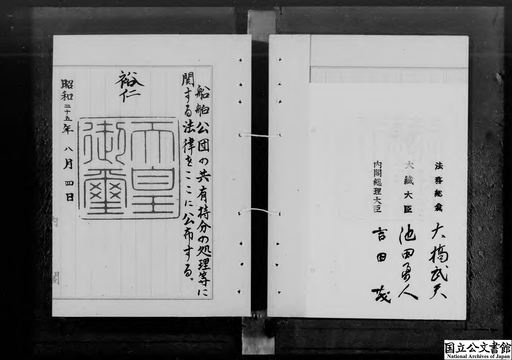 船舶公団の共有持分の処理等に
関する法律をここに公布する。
裕仁
天皇
御璽
昭和二十五年八月四日
法務総裁 大橋武夫
大蔵大臣 池田勇人
内閣総理大臣 吉田茂
国立公文書館
National Archives of Japan